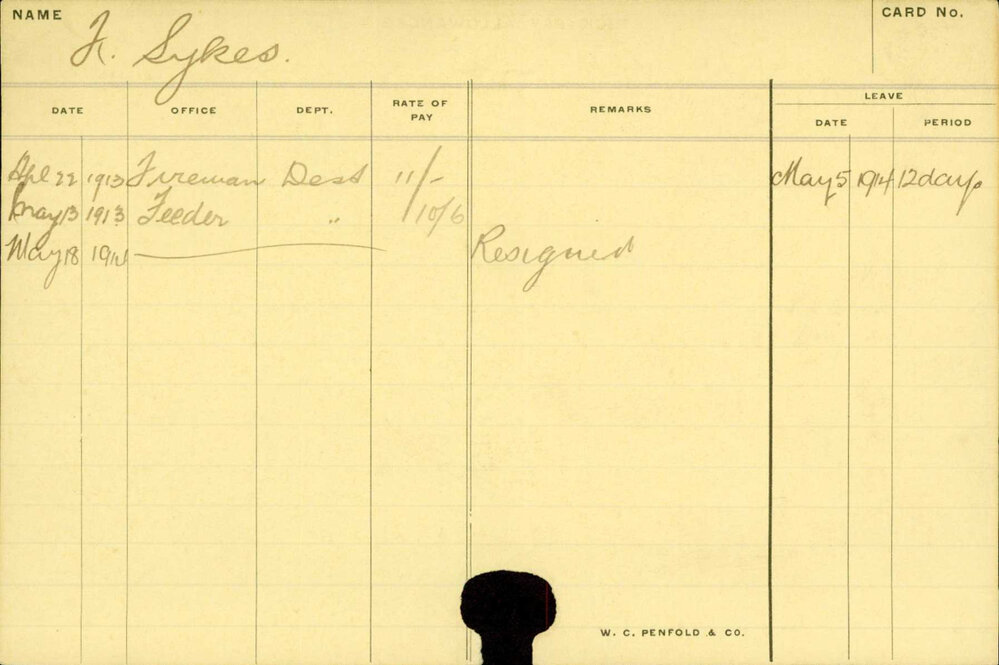 NAME F. Sykes. CARD No.
DATE OFFICE DEPT. RATE OF PAY REMARKS LEAVE
DATE PERIOD
Apl 22 1913 Fireman Dest 11/- May 5 1914 12 days
May 13 1913 Feeder " 10/6
May 18 1914 Resigned
W. C. PENFOLD & CO.